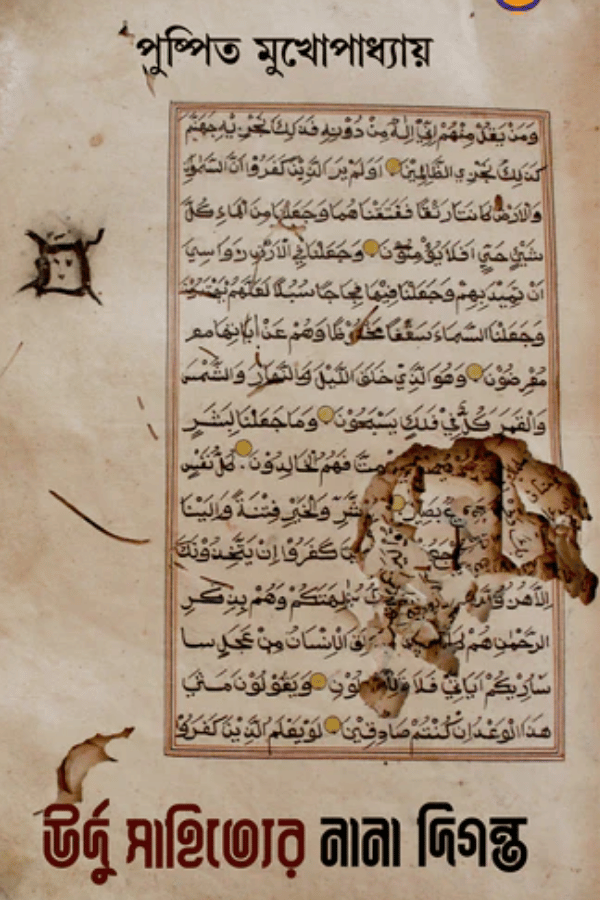 পুষ্পিত মুখোপাধ্যায়
وَمَنْ يَقُلْ مِنْهُمْ اِنِّيْ اِلٰهٌ مِنْ دُوْنِهِ فَذٰلِكَ نَجْزِيْهِ جَهَنَّمَ
كَذٰلِكَ نَجْزِي الظَّالِمِيْنَ اَوَلَمْ يَرَ الَّذِيْنَ كَفَرُوْا اَنَّ السَّمٰوٰتِ
وَالْاَرْضَ كَانَتَا رَتْقًا فَفَتَقْنَاهُمَا وَجَعَلْنَا مِنَ الْمَاءِ كُلَّ
شَيْءٍ حَيٍّ اَفَلَا يُؤْمِنُوْنَ وَجَعَلْنَا فِي الْاَرْضِ رَوَاسِيَ
اَنْ تَمِيْدَ بِهِمْ وَجَعَلْنَا فِيْهَا فِجَاجًا سُبُلًا لَعَلَّهُمْ يَهْتَدُوْنَ
وَجَعَلْنَا السَّمَاءَ سَقْفًا مَحْفُوْظًا وَهُمْ عَنْ اٰيَاتِهَا مع
مُعْرِضُوْنَ وَهُوَ الَّذِيْ خَلَقَ اللَّيْلَ وَالنَّهَارَ وَالشَّمْسَ
وَالْقَمَرَ كُلٌّ فِيْ فَلَكٍ يَسْبَحُوْنَ وَمَا جَعَلْنَا لِبَشَرٍ
مِتَّ فَهُمُ الْخَالِدُوْنَ كُلُّ نَفْسٍ
وَالْخَيْرِ فِتْنَةً وَاِلَيْنَا
كَفَرُوْا اِنْ يَتَّخِذُوْنَكَ
اٰلِهَتَكُمْ وَهُمْ بِذِكْرِ
الرَّحْمٰنِ هُمْ خُلِقَ الْاِنْسَانُ مِنْ عَجَلٍ سا
سَاُرِيْكُمْ اٰيَاتِيْ فَلَا وَيَقُوْلُوْنَ مَتٰى
هٰذَا الْوَعْدُ اِنْ كُنْتُمْ صَادِقِيْنَ لَوْ يَعْلَمُ الَّذِيْنَ كَفَرُوْا
উর্দু সাহিত্যের নানা দিগন্ত